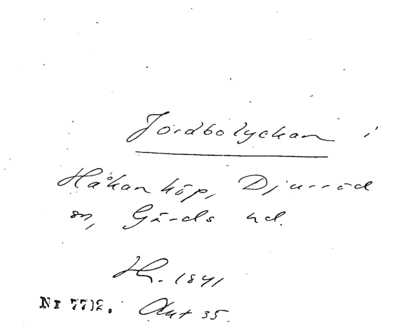 Jordbolyckan i
Håkanköp, Djurröd
sn, Gärds hd.
Hr. 1841
Nr 7712. Ant 35.